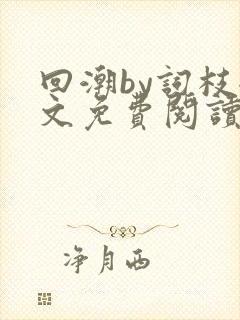 回潮by詞枝
文免費閱讀
净月西